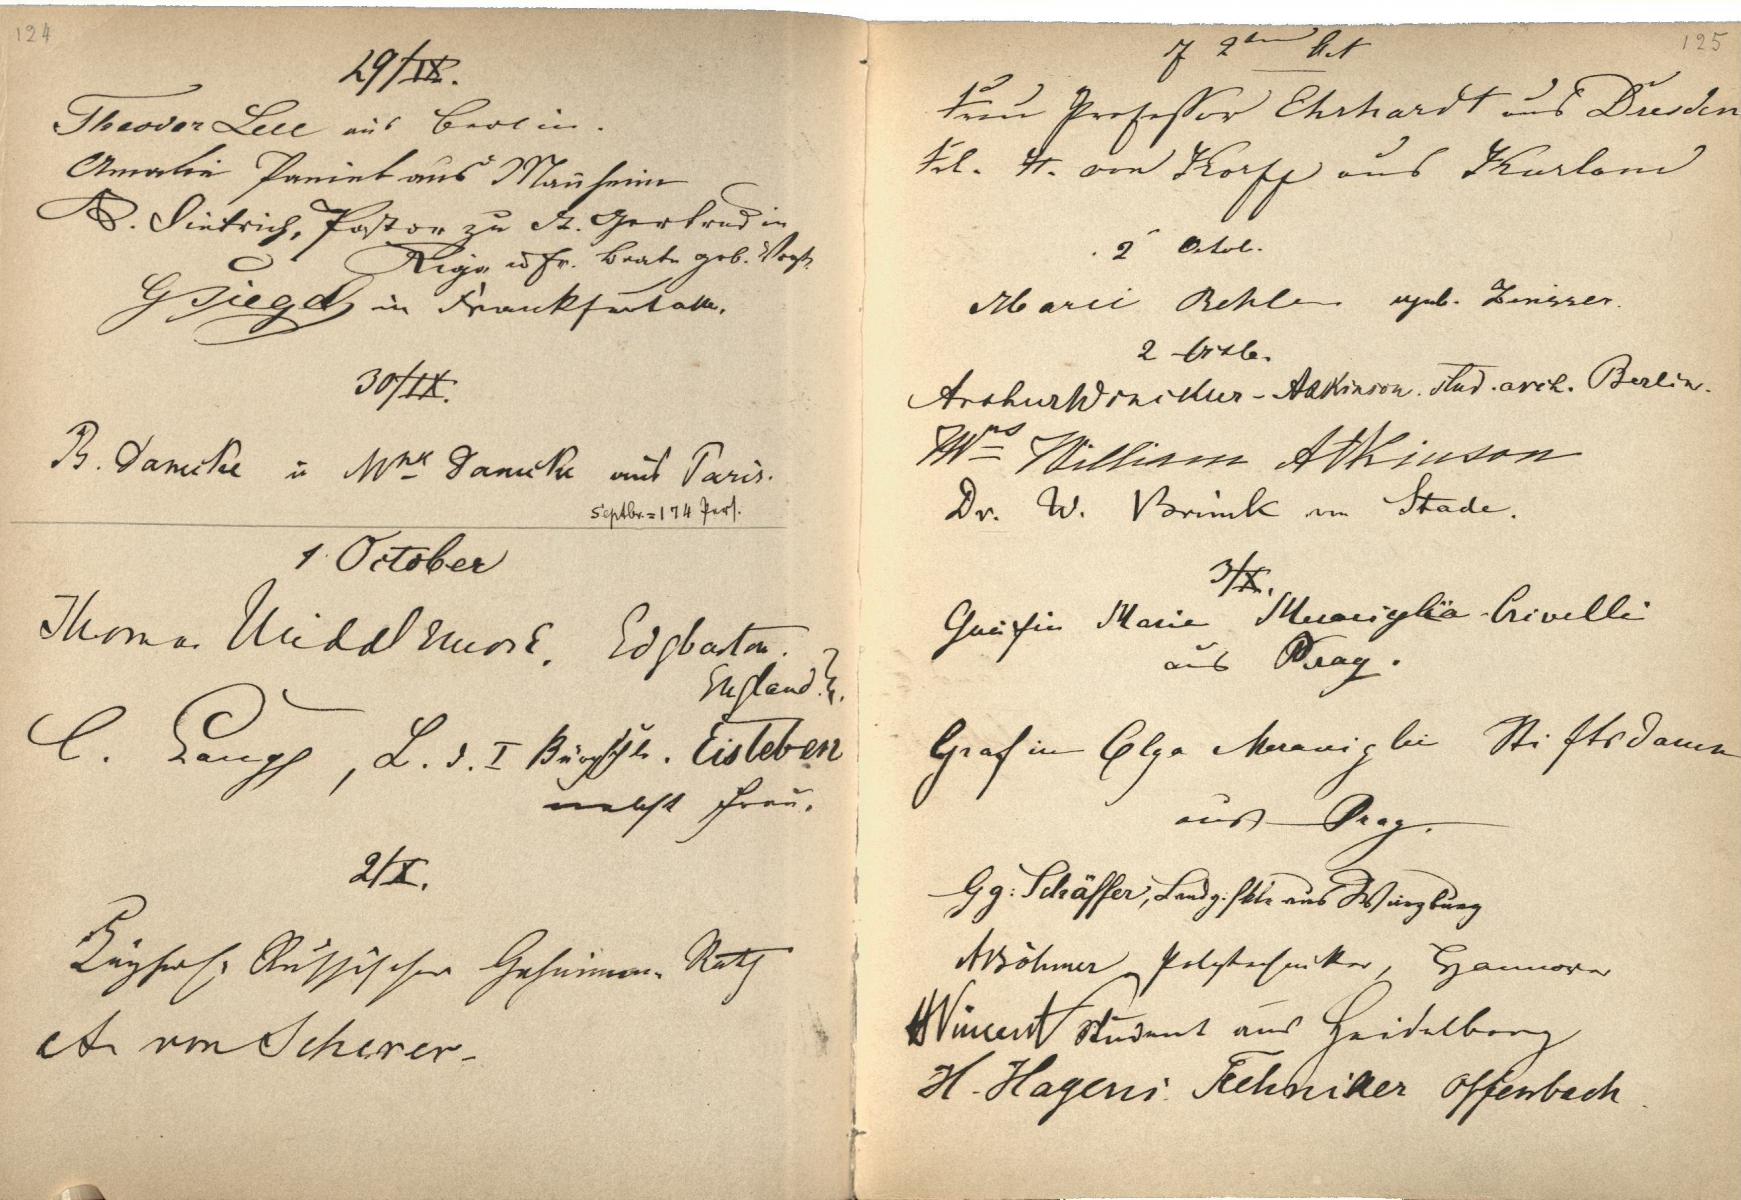 124
29/IX.
Theodor Lele aus Berlin.
Amalie Paniel aus Mañheim
Dietrich, Pastor zu St. Gertrud in
Riga u Fr. Beate geb. Vogt.
G Siegel in Frankfurt a/M.
30/IX.
B. Damcke u Mme Damcke aus Paris.
Septbr. = 174 Pers.
1 October
Thomas Middlemore. Edgbaston.
England.
C. Lange, L. d. I Bürgschle. Eisleben
nebst Frau.
2/X.
Kayserl. Russischer Geheimer Rath
A von Scherer.
125
2ten Oct
Frau Professor Ehrhardt aus Dresden
Frl. H. von Korff aus Kurland
2 Octol.
Marie Behlen geb. Zinsser.
2 Octb.
Arthur Woncker-Atkinson. stud. arch. Berlin.
Mrs William Atkinson
Dr. W. Brink Stade.
3/X.
Gräfin Marie Meraviglia-Crivelli
aus Prag.
Grafin Olga Meraviglia Stiftsdame
aus Prag.
Gg: Schäffer, aus Würzburg
A Böhmer Polytechniker, Hannover
Vincent Student aus Heidelberg
H. Hagens Techniker Offenbach